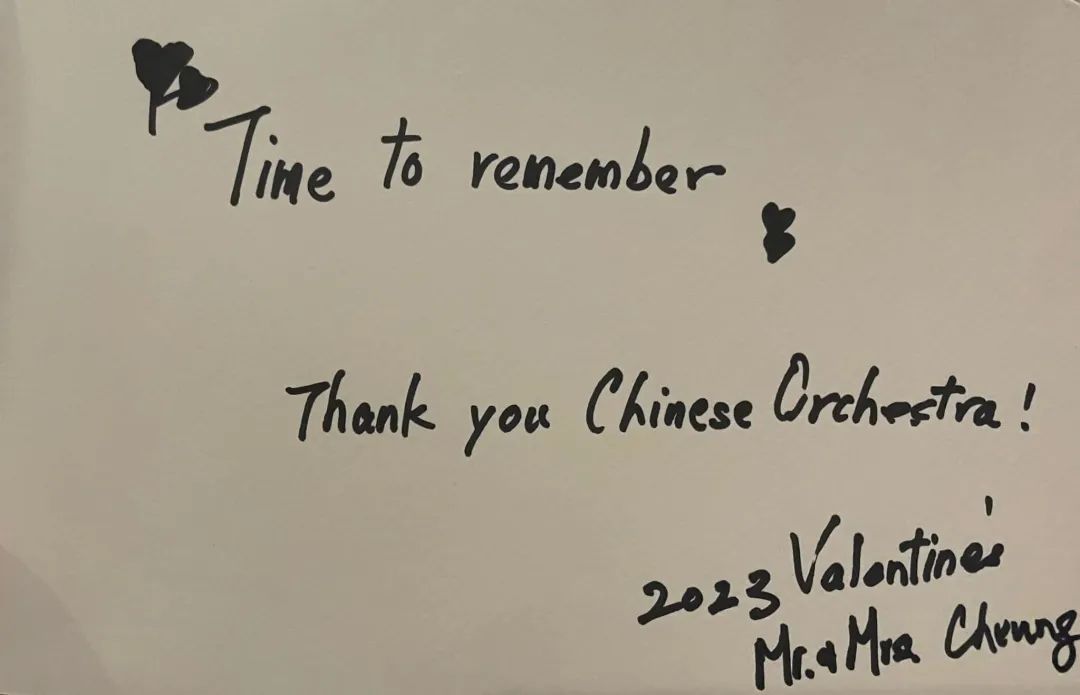 Time to remember
Thank you Chinese Orchestra!
2023 Valentine's
Mr. & Mrs. Cheung